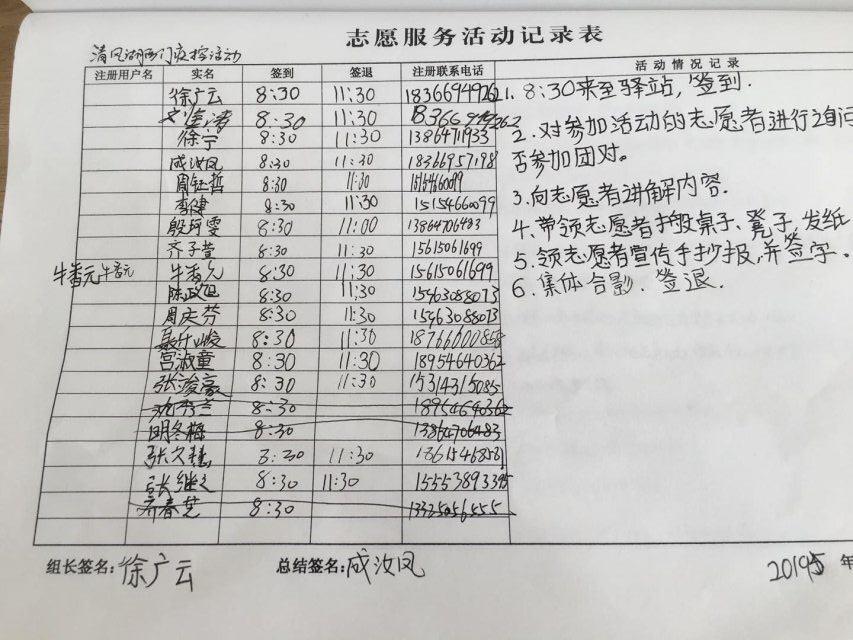 志愿服务活动记录表
清风湖西门疫控活动
注册用户名 实名 签到 签退 注册联系电话 活动情况记录
徐广云 8:30 11:30
8:30 11:30
徐宁 8:30 11:30 13864711933
成汝凤 8:30 11:30 18366957198
周钰哲 8:30 11:30
李健 8:30 11:30 15154660099
殷珂雯 8:30 11:00 13864706483
齐子萱 8:30 11:30 15615061699
牛香元 牛香元 牛香元 8:30 11:30 15615061699
陈政旭 8:30 11:30 15963088073
周庆芬 8:30 11:30 15963088073
8:30 11:30 18766000868
宫淑童 8:30 11:30 18954640362
张浚豪 8:30 11:30 15314315085
8:30 18954640362
明冬梅 8:30 13864706483
8:30 11:30
张继文 8:30 11:30
齐春芝 8:30 13325056555
1. 8:30来至驿站,签到.
2. 对参加活动的志愿者进行询问
否参加团对。
3.向志愿者讲解内容.
4. 带领志愿者摆放桌子、凳子,发纸
5. 领志愿者宣传手抄报,并签字。
6. 集体合影.签退.
组长签名:徐广云 总结签名:成汝凤 2019 年